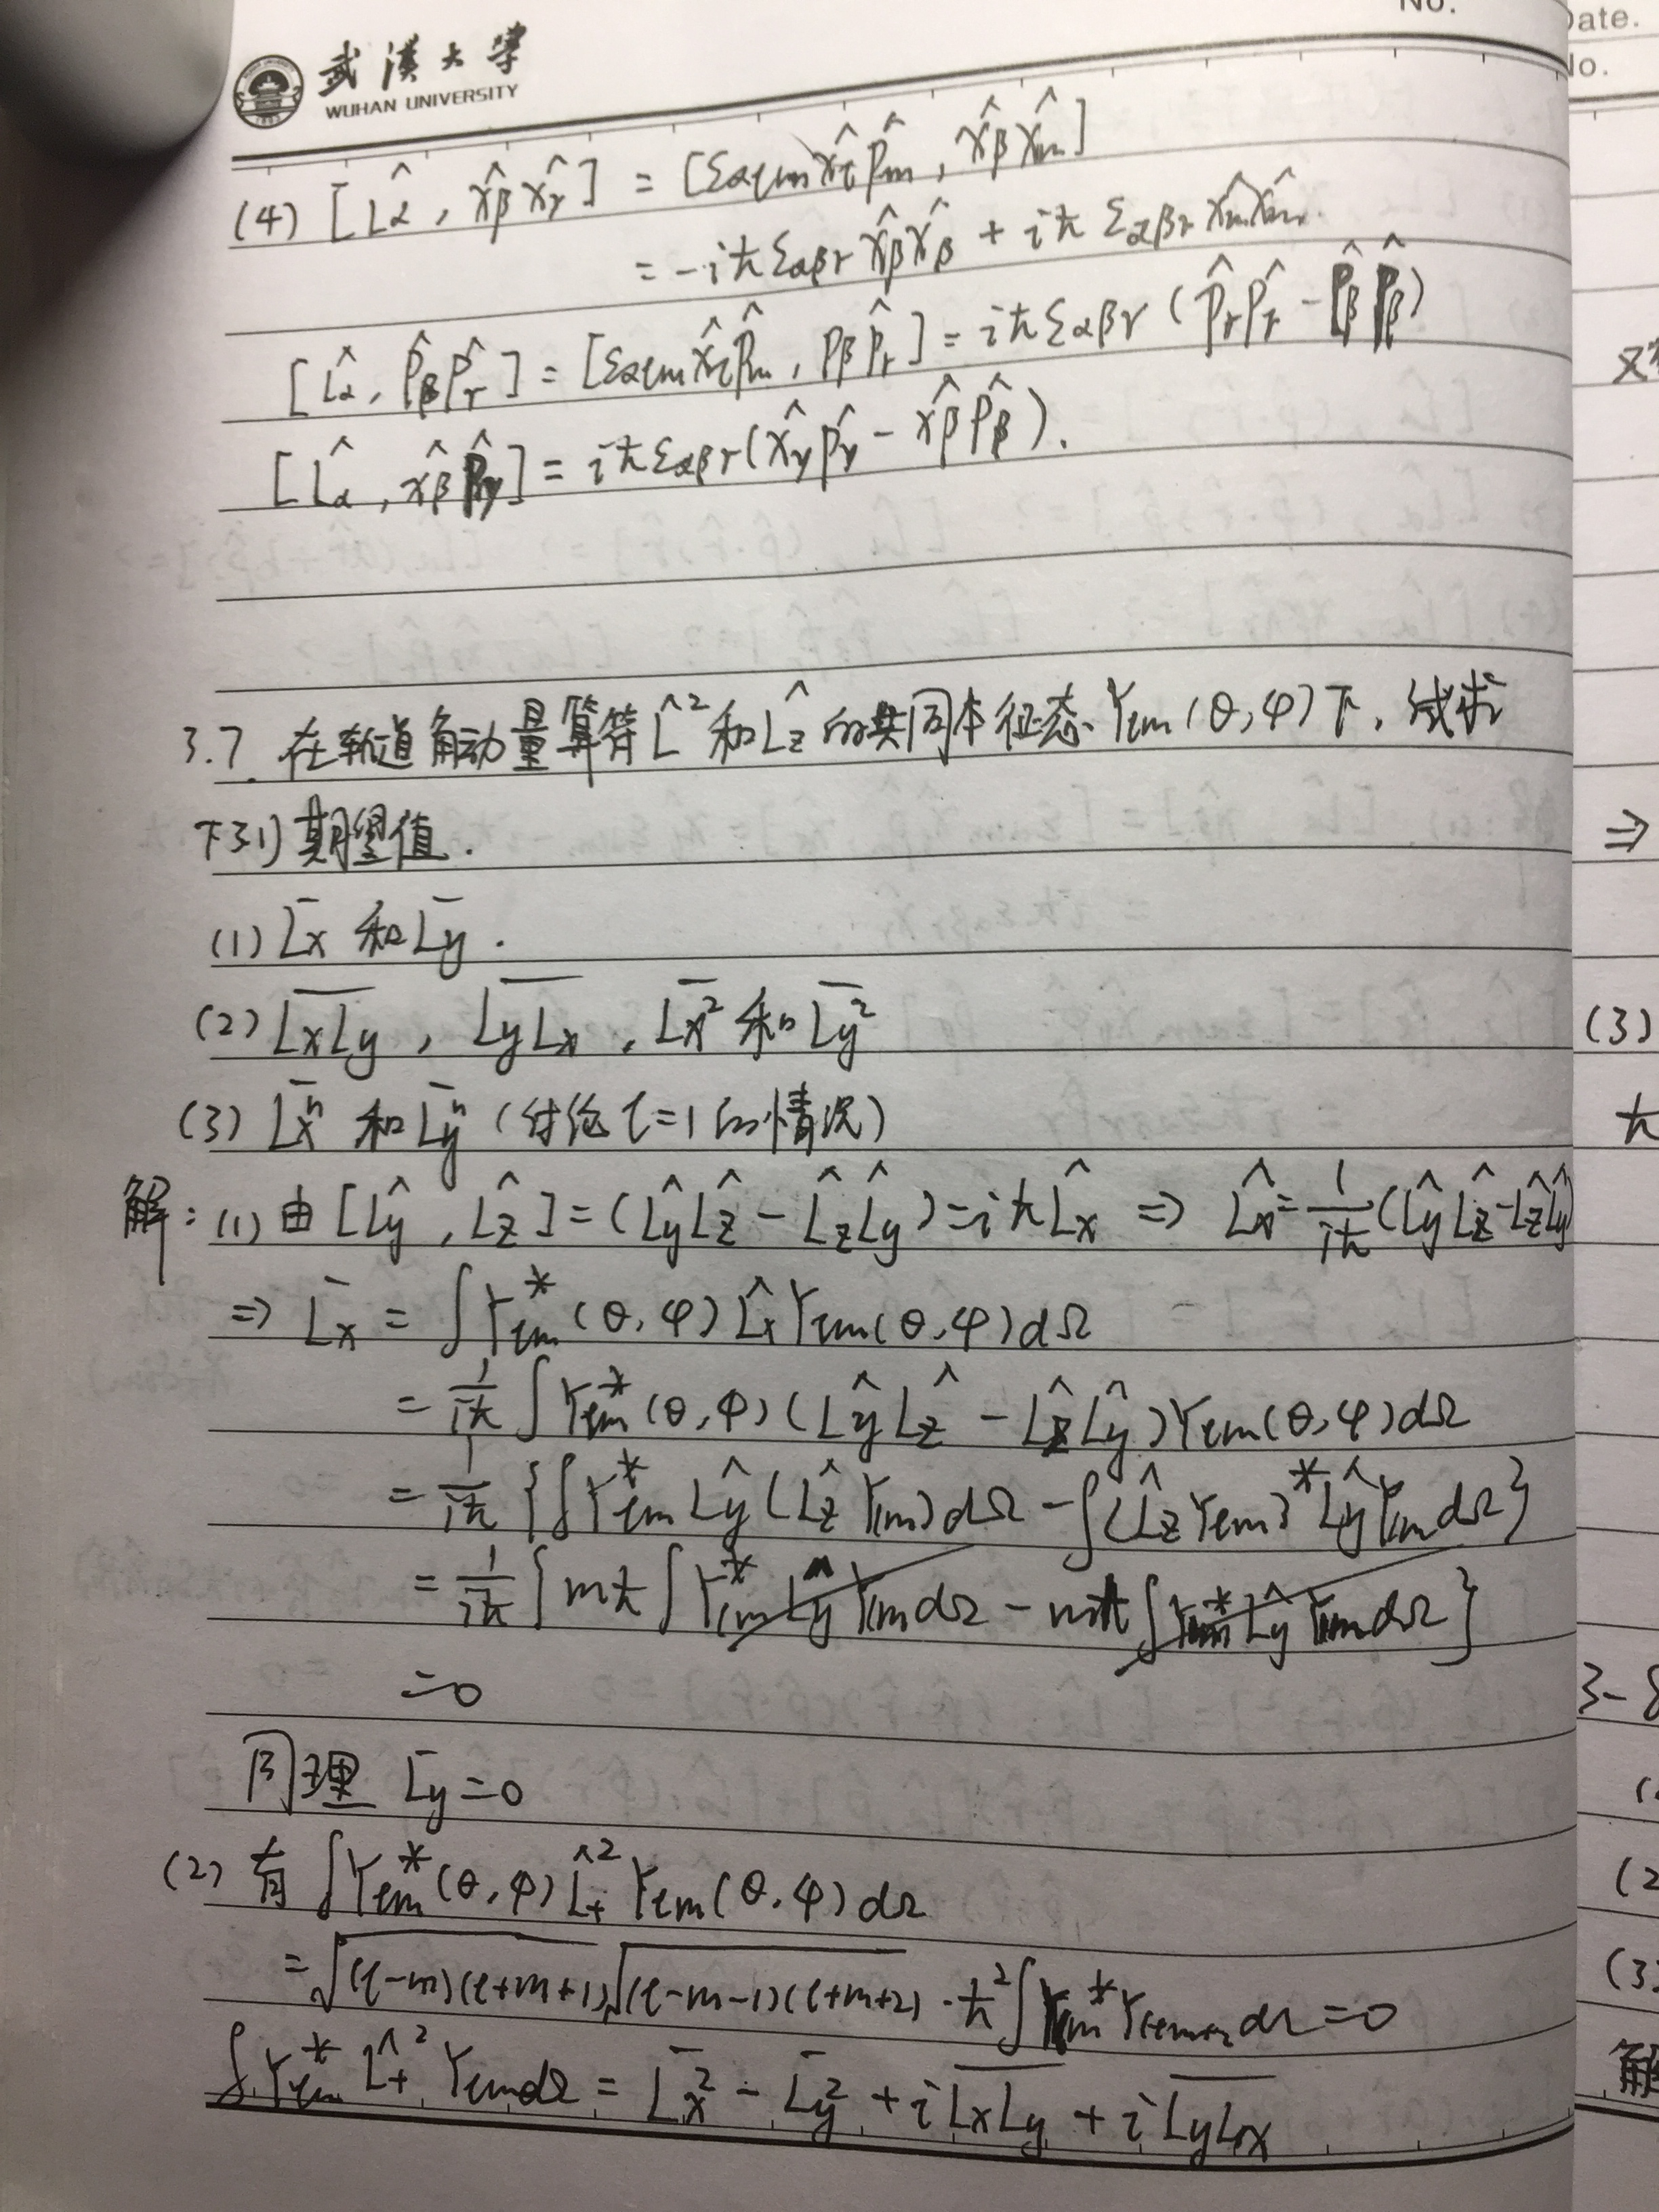 No.
Date.
No.
武漢大學
WUHAN UNIVERSITY
(4) [L̂α, x̂β x̂γ] = [εαlm x̂l p̂m, x̂β x̂m]
= -iħ εαβγ x̂β x̂β + iħ εαβγ x̂m x̂m.
[L̂α, p̂β p̂γ] = [εαlm x̂l p̂m, pβ p̂γ] = iħ εαβγ (p̂γ p̂γ - p̂β p̂β)
[L̂α, x̂β p̂γ] = iħ εαβγ (x̂γ p̂γ - x̂β p̂β).
3.7. 在轨道角动量算符 L̂² 和 L̂z 的共同本征态 Ylm(θ,φ)下, 试求
下列期望值.
(1) L̄x 和 L̄y.
(2) \overline{LxLy}, \overline{LyLx}, \overline{Lx²} 和 \overline{Ly²}
(3) \overline{Lx^n} 和 \overline{Ly^n} (讨论 l=1 的情况)
解: (1) 由 [L̂y, L̂z] = (L̂y L̂z - L̂z L̂y) = iħ L̂x ⇒ L̂x = 1/iħ (L̂y L̂z - L̂z L̂y)
⇒ L̄x = ∫Ylm*(θ,φ) L̂x Ylm(θ,φ) dΩ
= 1/iħ ∫Ylm*(θ,φ) (L̂y L̂z - L̂z L̂y) Ylm(θ,φ) dΩ
= 1/iħ {∫Ylm* L̂y (L̂z Ylm) dΩ - ∫(L̂z Ylm)* L̂y Ylm dΩ}
= 1/iħ {mħ ∫Ylm* L̂y Ylm dΩ - mħ ∫Ylm* L̂y Ylm dΩ}
= 0
同理 L̄y = 0
(2) 有 ∫Ylm*(θ,φ) L̂+² Ylm(θ,φ) dΩ
= √(l-m)(l+m+1) √(l-m-1)(l+m+2) · ħ² ∫Ylm* Ylm+2 dΩ = 0
∫Ylm* L̂+² Ylm dΩ = \overline{Lx²} - \overline{Ly²} + i \overline{LxLy} + i \overline{LyLx}
⇒
(3)
ħ
3-8
(2
(3
解